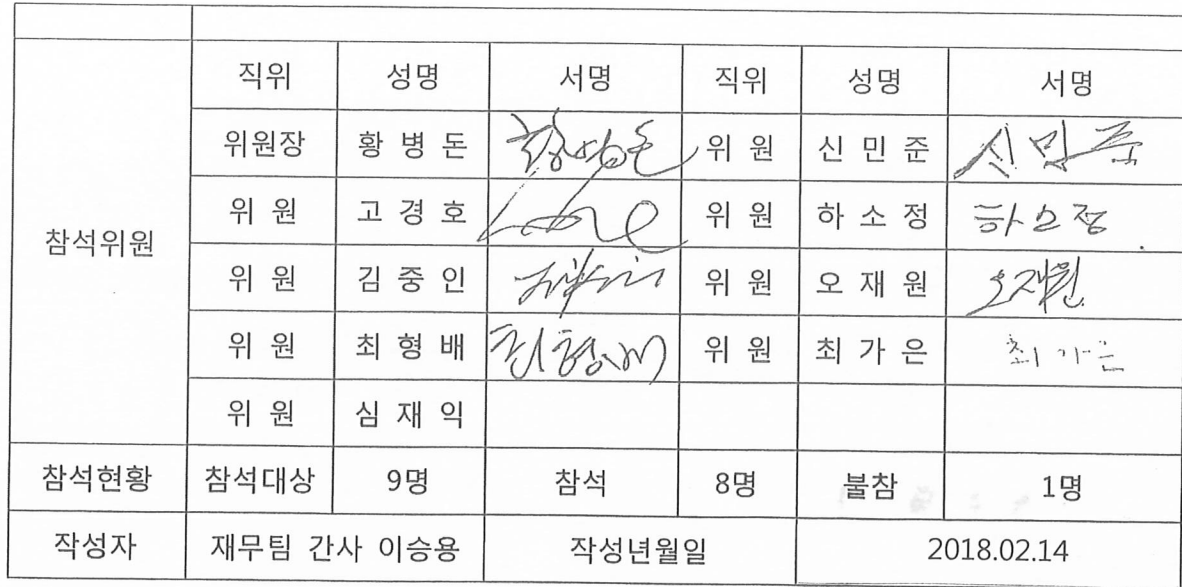 직위 성명 서명 직위 성명 서명
위원장 황 병 돈 황병돈 위 원 신 민 준 신민준
위 원 고 경 호 위 원 하 소 정 하소정
참석위원
위 원 김 중 인 위 원 오 재 원 오재원
위 원 최 형 배 최형배 위 원 최 가 은 최가은
위 원 심 재 익
참석현황 참석대상 9명 참석 8명 불참 1명
작성자 재무팀 간사 이승용 작성년월일 2018.02.14